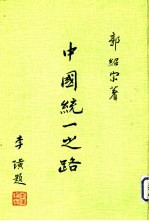 郭紹宗著
中國統一之路
李璜題